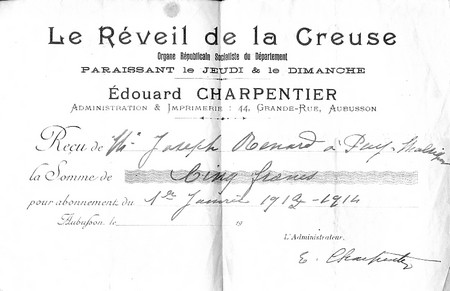 Le Réveil de la Creuse
Organe Républicain Socialiste du Département
PARAISSANT le JEUDI & le DIMANCHE
Édouard CHARPENTIER
ADMINISTRATION & IMPRIMERIE : 44, GRANDE-RUE, AUBUSSON
Reçu de Mr Joseph Renard à Puy-
la Somme de Cinq francs
pour abonnement du 1er Janvier 1912-1914
Aubusson, le 19
L'Administrateur,
E. Charpentier